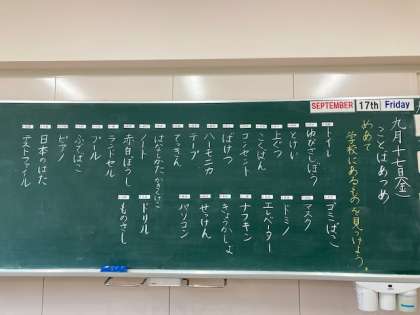 SEPTEMBER 17th Friday
九月十七日(金)
ことばあつめ
めあて
学校にあるものを見つけよう。
トイレ
ゴミばこ
ゆびさしぼう
マスク
とけい
ドミノ
上ぐつ
エレベーター
こくばん
ナフキン
コンセント
きょうかしょ
ばけつ
せっけん
ハーモニカ
パソコン
テープ
てっきん
はなしかた
かきくけこ
ノート
ドリル
赤白ぼうし
ものさし
ランドセル
プール
ふでばこ
ピアノ
日本のはた
テストファイル